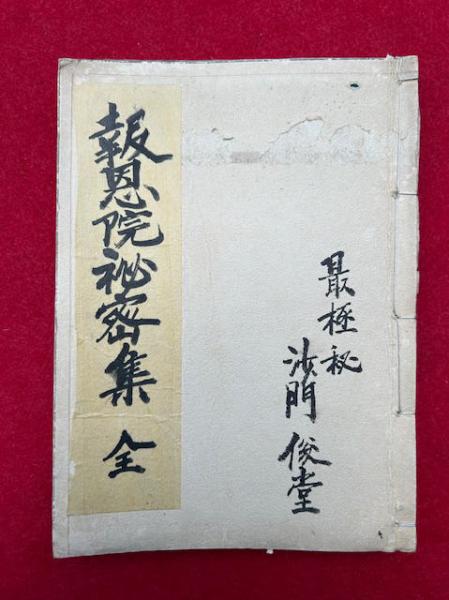 最極秘
沙門 俊堂
報恩院祕密集 全